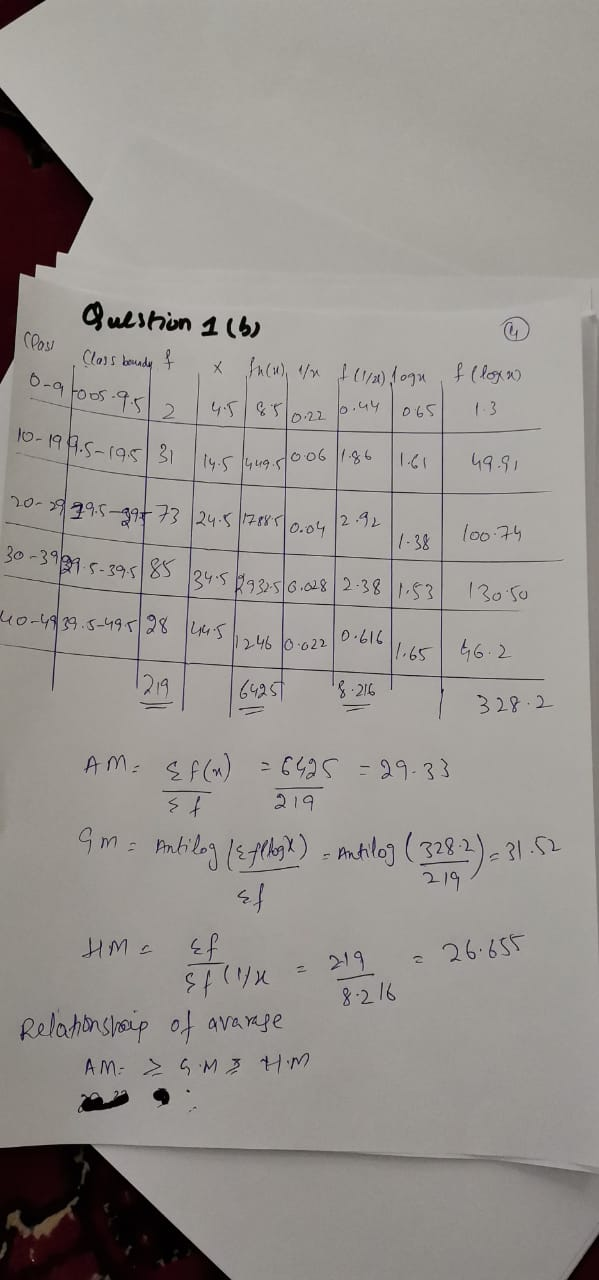 Question 1 (b)
4
Class Class boundy f x fx(x) 1/x f(1/x) logx f(logx)
0-9 -005-9.5 2 4.5 8.5 0.22 0.44 065 1.3
10-19 9.5-19.5 31 14.5 449.5 0.06 1.86 1.61 49.91
20-29 73 24.5 17885 0.04 2.92 1.38 100.74
30-39 29.5-39.5 85 34.5 2932.5 0.028 2.38 1.53 130.50
40-49 39.5-49.5 28 44.5 1246 0.022 0.616 1.65 46.2
219 6425 8.216 328.2
AM = Σf(x) / Σf = 6425 / 219 = 29.33
GM = Antilog (Σf(logx) / Σf = Antilog (328.2 / 219) = 31.52
HM = Σf / Σf(1/x = 219 / 8.216 = 26.655
Relationship of avarage
AM = ≥ G.M ≥ H.M